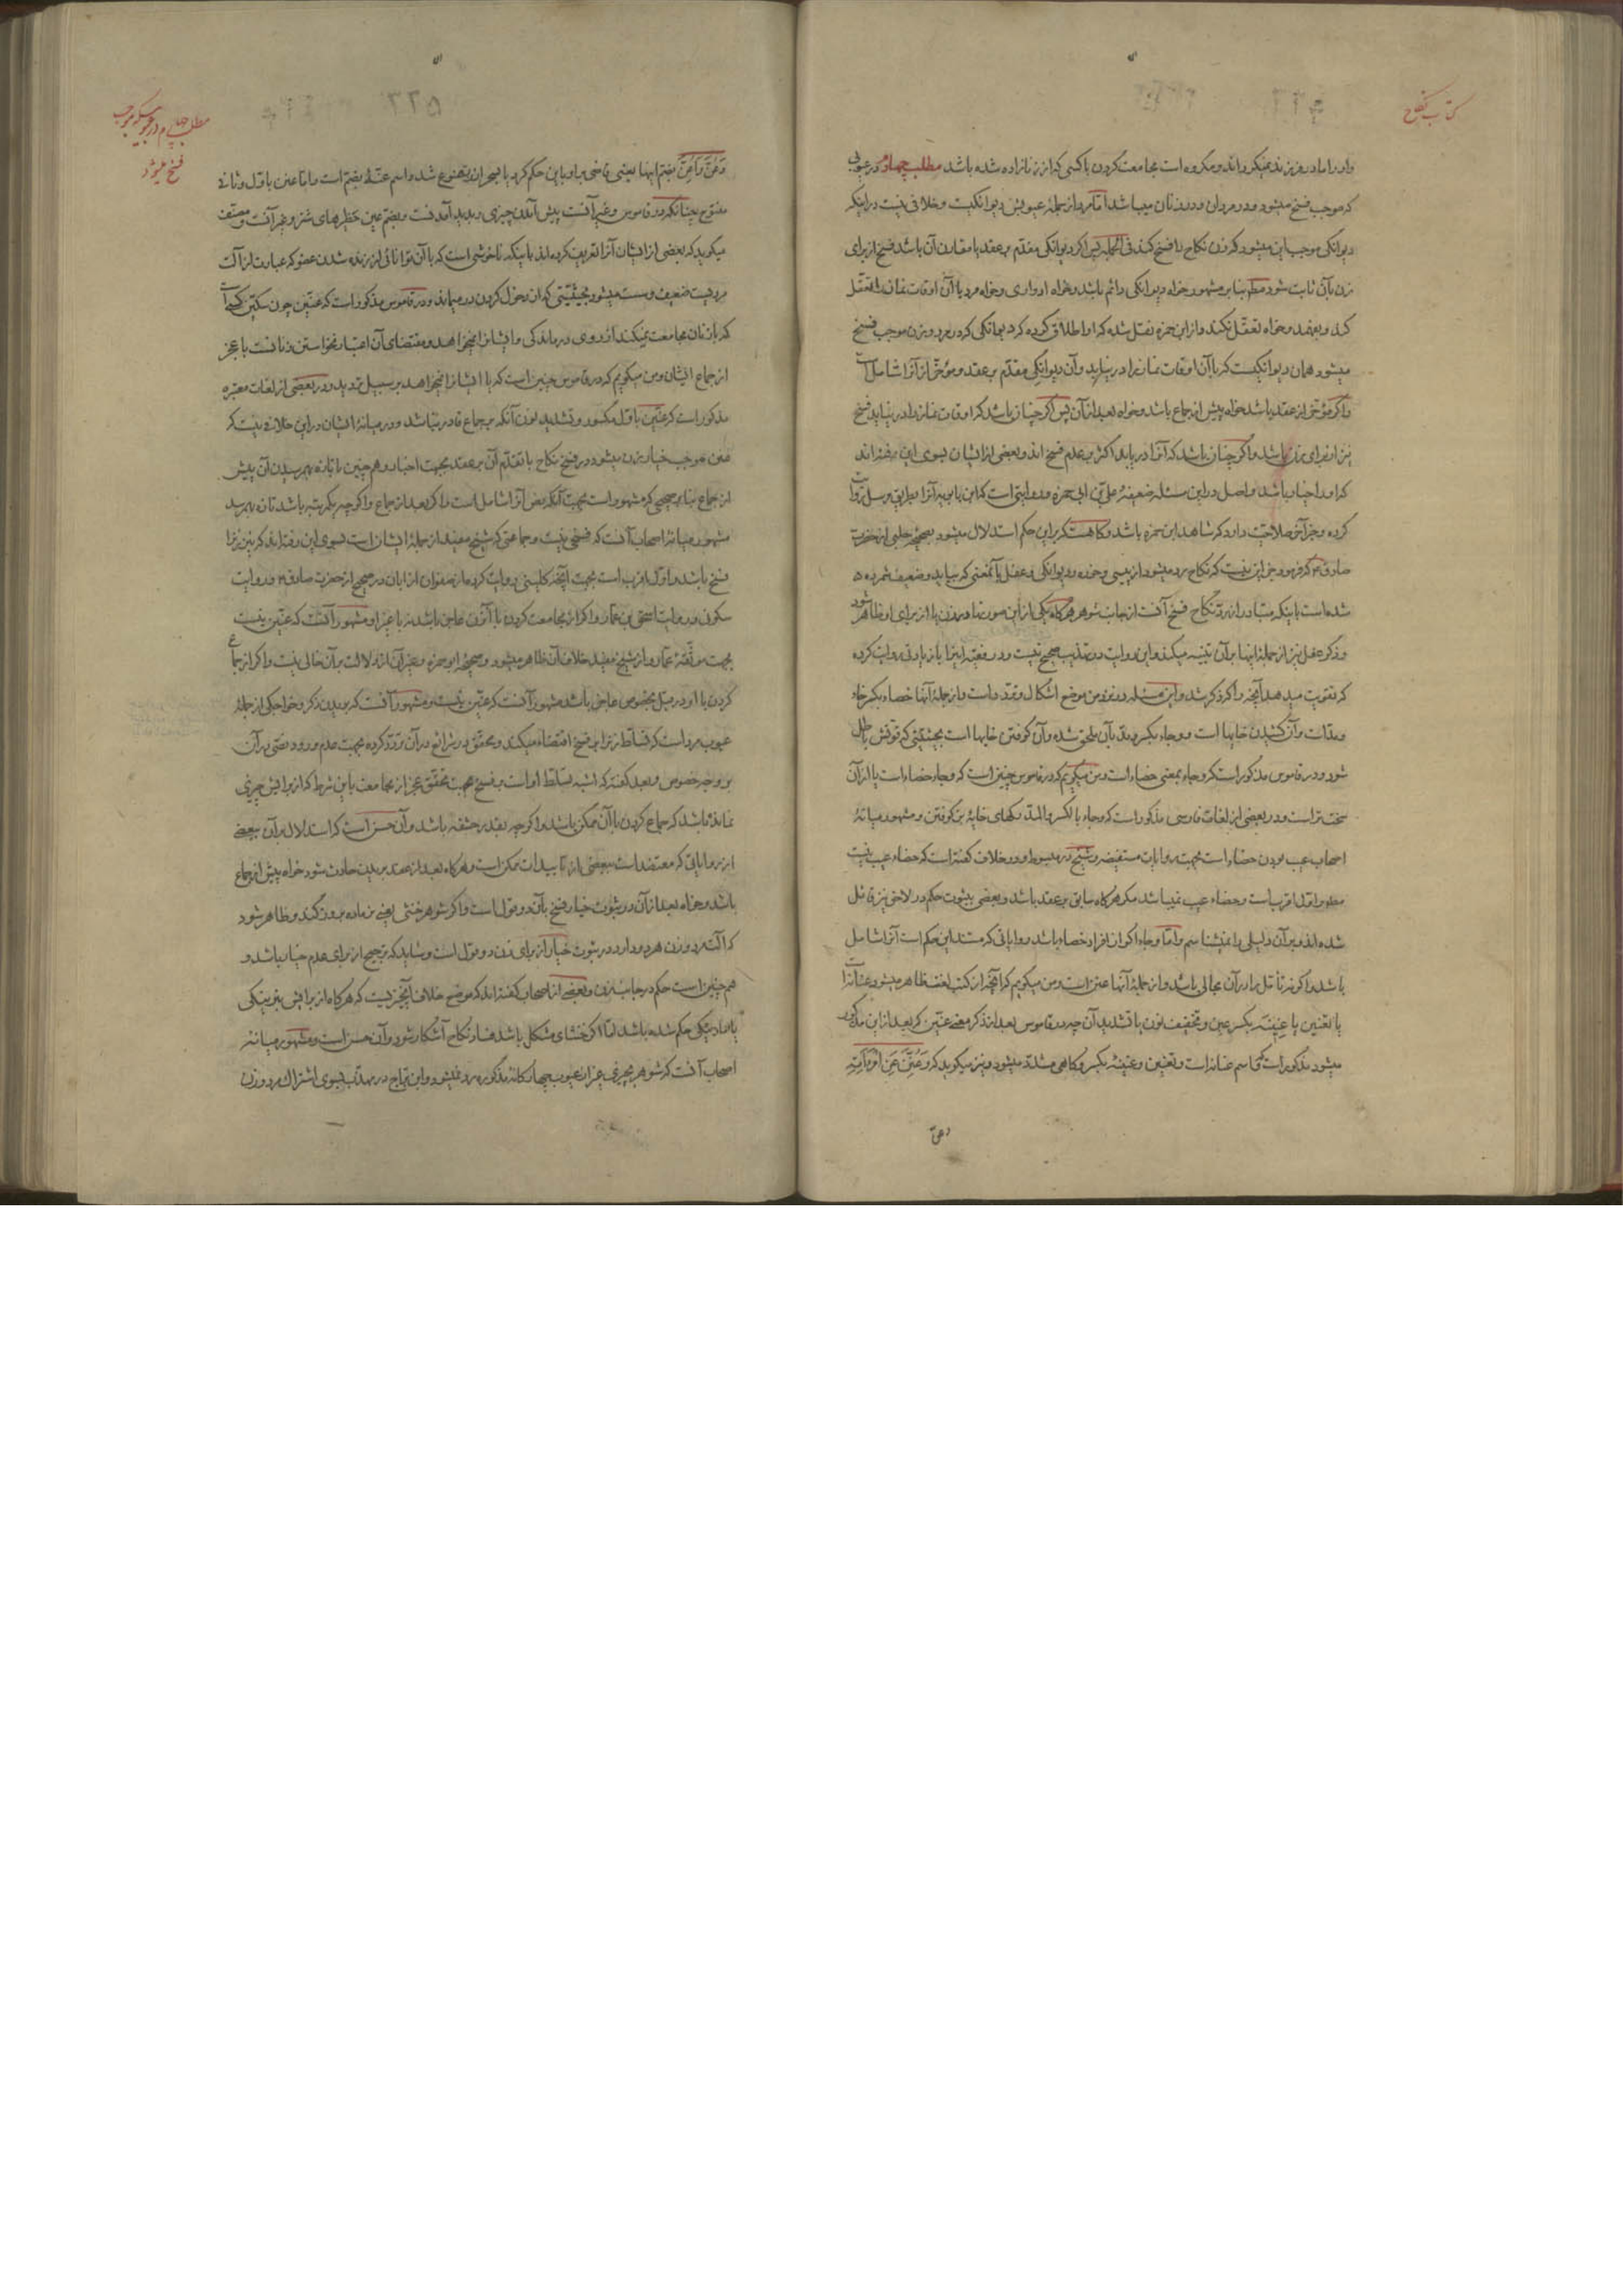 کتاب نکاح
واو را مادر و پدر نمیگرداند و مکروه است مجامعت کردن با کسی که از زنا زاده شده باشد مطلب چهارم در عیوبی
که موجب فسخ میشود و در مردان و در زنان میباشد اما مرد از جمله عیوبش دیوانکیست و خلافی نیست در اینکه
دیوانکی موجب این میشود که زن نکاح را فسخ کند فی الجمله پس اکر دیوانکی مقدم بر عقد یا مقارن آن باشد فسخ از برای
زن بآن ثابت شود مطلقا بنا بر مشهور خواه دیوانکی دائم باشد و خواه ادواری و خواه مرد با آن اوقات نماز را تعقل
کند و بفهمد و خواه تعقل نکند و از ابن حمزه نقل شده که او اطلاق کرده که دیوانکی که در مرد و زن موجب فسخ
میشود همان دیوانکیست که با آن اوقات نماز را در نیابد و آن دیوانکی مقدم بر عقد و مؤخر از آنرا شامل است
و اکر مؤخر از عقد باشد خواه پیش از جماع باشد و خواه بعد از آن پس اکر چنان باشد که اوقات نماز را در نیابد فسخ
نیز از برای زن باشد و اکر چنان باشد که آنرا در یابد اکثر بر عدم فسخ اند و بعضی از ایشان بسوی این رفته اند
که او را خیار باشد و اصل در این مسئله ضعیفه علی بن ابی حمزه و روایتی است که ابن بابویه آنرا بطریق مرسل روایت
کرده و جز آخر صلاحیت دارد که شاهد ابن حمزه باشد و کاه هست که بر این حکم استدلال میشود بصحیحه حلبی از حضرت
صادق ع که فرمود جز این نیست که نکاح رد میشود از پیسی و خوره و دیوانکی و عفل با آنمعنی که بیاید و ضعیف شمرده
شده است باینکه متبادر از رد نکاح فسخ آنست از جانب شوهر هرکاه یکی از این صورتها در زن باز برای او ظاهر شود
و ذکر عفل نیز از جمله اینها بر آن تنبیه میکند و این روایت در تهذیب صحیح نیست و در فقیه اینرا با زیادتی روایت کرده
که تقویت میدهد آنچه را که ذکر شد و این مسئله در نزد من موضع اشکال و تردد است و از جمله آنها خصاء بکسر خاء
و مدّ است و آن کشیدن خایها است و وجاء بکسر و مد بآن ملحق شده و آن کوفتن خایها است بحیثیتی که قوتش باطل
شود و در قاموس مذکور است که وجاء بمعنی خصاء است و من میکویم که در قاموس چنین است که وجاء خصاء است یا از آن
سخت تر است و در بعضی از لغات فارسی مذکور است که وجاء بالکسر و المد رکهای خایه بز کوفتن و مشهور میانه
اصحاب عیب بودن خصاء است بجهت روایات مستفیضه و شیخ در مبسوط و در خلاف کفته است که خصاء عیب نیست
شده اند و بر آن دلیلی را نمیشناسم و اما وجاء اکر از افراد خصاء باشد روایاتی که مستند این حکم است آنرا شامل
باشد و اکر نه تأمل را در آن مجالی باشد و از جمله آنها عنن است و من میکویم که آنچه از کتب لغت ظاهر میشود
میشود مذکور است که اسم عنانة است و تعنین و عنینة بکسر و کاهی مشدّد میشود و نیز میکوید که و عُنِّنَ عَنِ امْرَأَتِهِ
وعن
۲۲۵
مطلب چهارم در عیوبیکه موجب
فسخ میشود
وَعُنَّ وَأُعِنَّ بضم اینها یعنی قاضی بر او باین حکم کرد یا بسحر از زن ممنوع شد و اسم عنّة بضم است و اما عنن باول و ثانی
مفتوح چنانکه در قاموس و غیر آنست پیش آمدن چیزی و پدید آمدنست و بضم عین حظرهای شتر و غیر آنست و مصنف
میکوید که بعضی از ایشان آنرا تعریف کرده اند باینکه ناخوشی است که با آن توانائی از زنده شدن عضو که عبارت از آلت
مردیست ضعیف و سست میشود بحیثیتی که از دخول کردن درمیماند و در قاموس مذکور است که عنّین چون سکین کسی است
که با زنان مجامعت نمیکند از روی درماندکی و ایشانرا نمیخواهد و مقتضای آن اعتبار نخواستن زنانست با عجز
از جماع ایشان و من میکویم که در قاموس چنین است که یا ایشانرا نمیخواهد بر سبیل تردید و در بعضی از لغات معتبره
مذکور است که عنین باول مکسور و تشدید نون آنکه بر جماع قادر نباشد و در میانه ایشان در این خلافی نیست که
عنن موجب خیار زن میشود در فسخ نکاح با تقدّم آن بر عقد بجهت اخبار و همچنین با تازه بهم رسیدن آن پیش
از جماع بنا بر صحیحی که مشهور است بجهت آنکه نص آنرا شامل است و اکر بعد از جماع و اکر چه یکمرتبه باشد تازه بهم رسد
مشهور میانه اصحاب آنست که فسخی نیست و جماعتی که شیخ مفید از جمله ایشان است بسوی این رفته اند که نیز زنرا
فسخ باشد و اول اقرب است بجهت آنچه کلینی روایت کرده از صفوان از ابان در صحیح از حضرت صادق ع و روایت
سکونی و روایت اسحق بن عمار و اکر از مجامعت کردن با آنزن عاجز باشد نه با غیر او مشهور آنست که عنین نیست
بجهت موثقه عمار و از شیخ مفید خلاف آن ظاهر میشود و صحیحه ابو حمزه و غیر آن از دلالت بر آن خالی نیست و اکر از جماع
کردن با او در قبل بخصوص عاجز باشد مشهور آنست که عنین نیست و مشهور آنست که بریدن ذکر و خواجکی از جمله
عیوب مرد است که تسلّط زنرا بر فسخ اقتضاء میکند و محقق در شرائع در آن تردّد کرده بجهت عدم ورود نصّی در آن
بر وجه خصوص و بعد کفته که اشبه تسلّط او است بر فسخ بجهت تحقّق عجز از مجامعت باین شرط که از برایش چیزی
نمانده باشد که جماع کردن با آن ممکن باشد و اکر چه بقدر حشفه باشد و آن حسن است که استدلال بر آن ببعضی
از روایاتی که معتضد است ببعضی از تأییدات ممکن است و هرکاه بعد از عقد بریدن حادث شود خواه پیش از جماع
باشد و خواه بعد از آن در ثبوت خیار فسخ بآن دو قول است و اکر شوهر خنثی یعنی نر ماده بیرون کند و ظاهر شود
که آلت مرد و زن هر دو دارد در ثبوت خیار از برای زن دو قول است و شاید که ترجیح از برای عدم خیار باشد و
همچنین است حکم در جانب زن و بعضی از اصحاب کفته اند که موضع خلاف آنچیزیست که هرکاه از برایش بنرینکی
یا مادینکی حکم شده باشد اما اکر خنثای مشکل باشد فساد نکاح آشکار شود و آن حسن است و مشهور میانه
اصحاب آنست که شوهر بچیزی غیر از عیوب چهارکانه مذکوره رد نمیشود و ابن براج در مهذب بسوی اشتراک مرد و زن